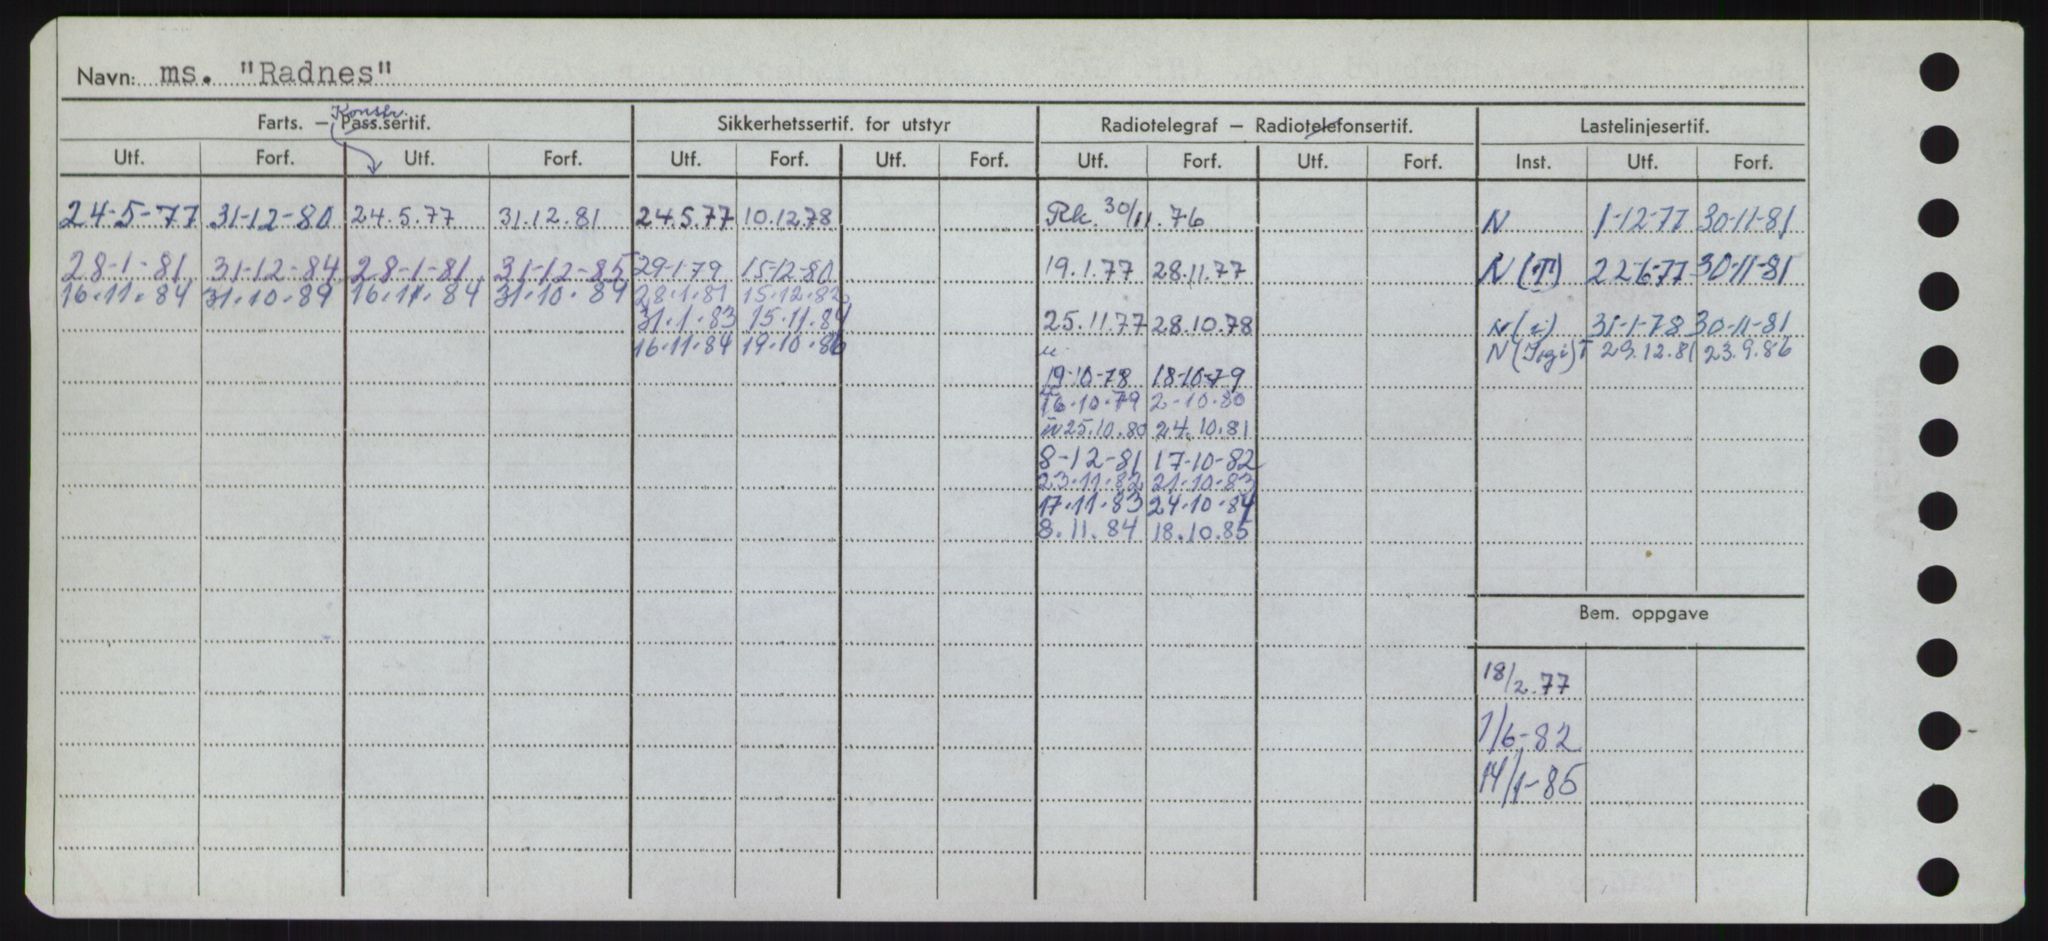 Navn: ms. "Radnes"
Konstr.
Farts. — Pass.sertif. Sikkerhetssertif. for utstyr Radiotelegraf — Radiotelefonsertif. Lastelinjesertif.
Utf. Forf. Utf. Forf. Utf. Forf. Utf. Forf. Utf. Forf. Utf. Forf. Inst. Utf. Forf.
24-5-77 31-12-80 24.5.77 31.12.81 24.5.77 10.12.78 Rk. 30/11.76 N 1-12-77 30-11-81
28-1-81 31-12-84 28-1-81 31-12-85 29-1-79 15-12-80 19.1.77 28.11.77 N (T) 22-6-77 30-11-81
16.11.84 31.10.89 16.11.84 31.10.89 28.1.81 15.12.82
31.1.83 15.11.84 25.11.77 28.10.78 N (i) 31-1-78 30-11-81
16.11.84 19.10.86 N ( ) T 29.12.81 23.9.86
19-10-78 18-10-79
16.10.79 2-10.80
25.10.80 24.10.81
8-12-81 17-10-82
23.11.82 21.10.83
17.11.83 24.10.84
8.11.84 18.10.85
Bem. oppgave
18/2.77
1/6-82
14/1-85